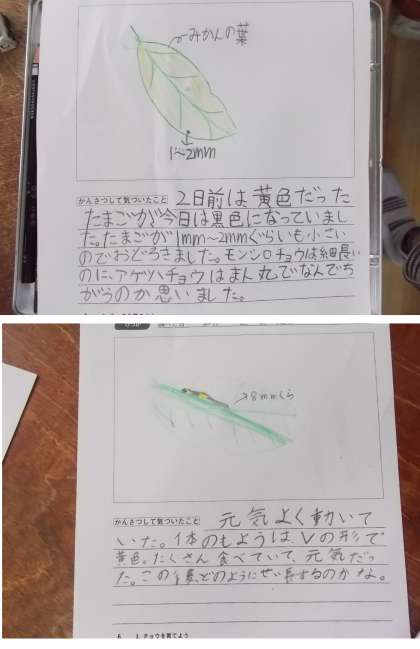 みかんの葉
1~2mm
かんさつして気づいたこと 2日前は黄色だった
たまごが今日は黒色になっていまし
た。たまごが1mm~2mmぐらいも小さい
のでおどろきました。モンシロチョウは細長い
のに、アゲハチョウはまん丸でなんでち
がうのか思いました。
8mmくら
かんさつして気づいたこと 元気よく動いて
いた。体のもようはVの形で
黄色。たくさん食べていて、元気だっ
た。この後、どのようにせい長するのかな。
チョウを育てよう